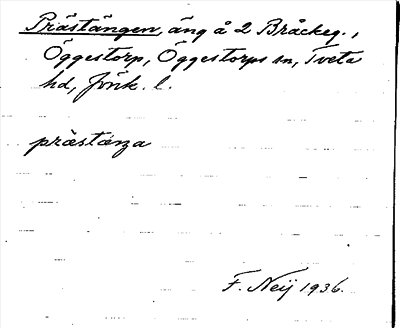 Prästängen, äng å 2 Bråckeg.,
Öggestorp, Öggestorps sn, Tveta
hd, Jönk. l.
prästäŋa
F. Neij 1936.